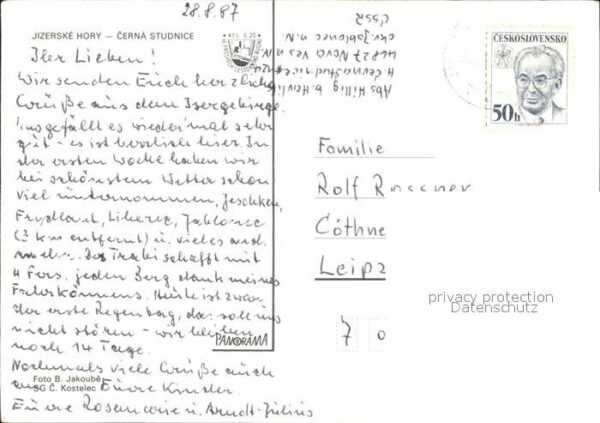 28.8.87
JIZERSKÉ HORY – ČERNÁ STUDNICE
Ihr Lieben!
Wir senden Euch herzliche
Grüße aus dem Isergebirge.
Uns gefällt es wieder mal sehr
gut - es ist herrlich hier. In
der ersten Woche haben wir
bei schönstem Wetter schon
viel unternommen, Jeschken,
Frydland, Liberec, Jablonec
km entfernt) u. vieles and.
mehr. Der Trabi schafft mit
4 Pers. jeden Berg dank meines
Fahrkönnens. Heute ist zwar
der erste Regentag, das soll uns
nicht stören - wir bleiben
noch 14 Tage.
Nochmals viele Grüße auch
an Eure Kinder
Eure Rosemarie u. Arndt-Julius
Foto B. Jakoubě
SG Č. Kostelec
PANORAMA
Kčs 0,20
Abs Hillig b. Havlik
H. Černá Studnice
46827 Nova Ves n.N.
okr. Jablonec n.N
ČSSR
ČESKOSLOVENSKO
50h
Familie
Rolf
Cöthner
Leipz
70
privacy protection
Datenschutz